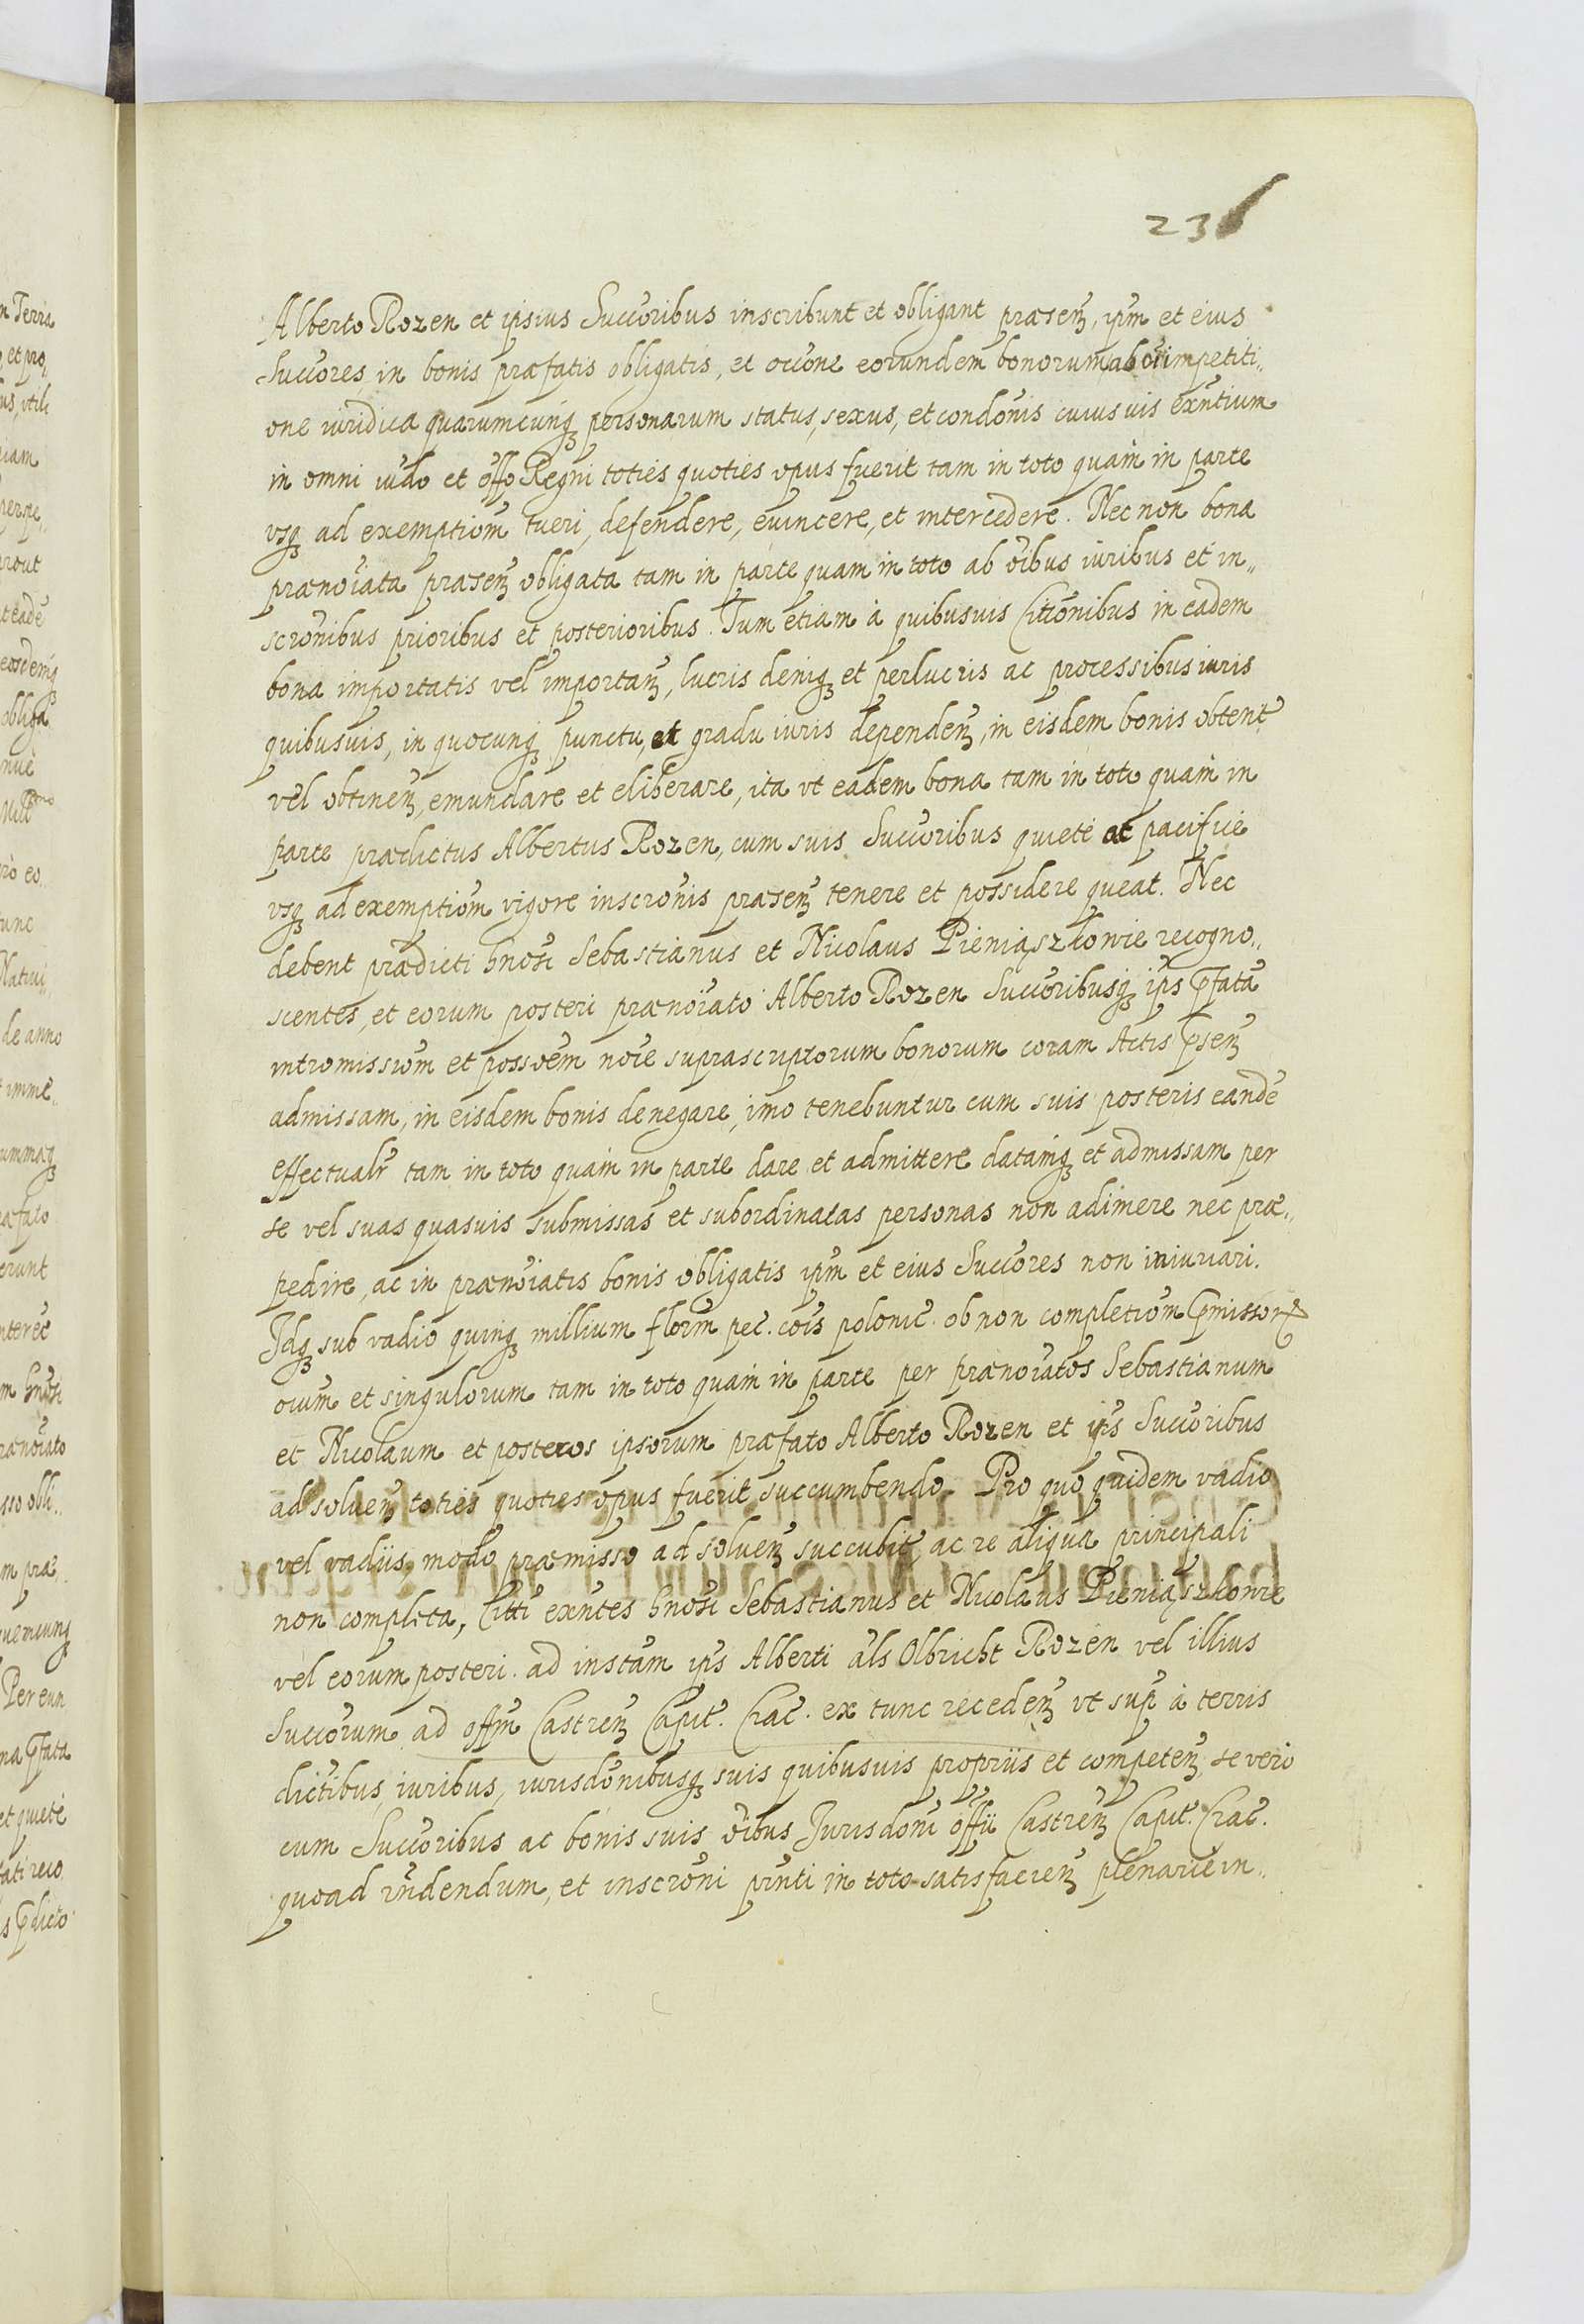 236
Alberto Rozen et ipsius Succoribus inscribunt et obligant præsenꝫ, ipm̃ et eius
Succores in bonis præfatis obligatis, et occõne eorundem bonorum ab õi impetiti„
one iuridica quarumcunqꝫ personarum status, sexus, et condõnis cuiusuis exñtium
in omni iud̃o et off̃o Regni toties quoties opus fuerit tam in toto quam in parte
vsqꝫ ad exemptiom̃ tueri, defendere, euincere, et intercedere. Nec non bona
prænoĩata præsenꝫ obligata tam in parte quam in toto ab õibus iuribus et in„
scrõnibus prioribus et posterioribus. Tum etiam à quibusuis Citt̃onibus in eadem
bona importatis vel importanꝫ, lucris deniqꝫ et perlucris ac processibus iuris
quibusuis, in quocunqꝫ punctu, et gradu iuris dependenꝫ, in eisdem bonis obtent̃
vel obtinenꝫ, emundare et eliberare, ita vt eadem bona tam in toto quam in
parte prædictus Albertus Rozen, cum suis Succoribus quietè at pacificè
vsqꝫ ad exemptiom̃ vigore inscrõnis præsenꝫ tenere et possidere queat. Nec
debent prædicti gñosi Sebastianus et Nicolaus Pieniąszkowie recogno„
scentes, et eorum posteri prænoĩato Alberto Rozen Succoribusqꝫ ip̃s p̃fatã
intromissiom̃ et possoẽm noĩe suprascriptorum bonorum coram Actis p̃senꝫ
admissam, in eisdem bonis denegare, imo tenebuntur cum suis posteris eandẽ
effectualr̃ tam in toto quam in parte dare et admittere datamqꝫ et admissam per
se vel suas quasuis submissas et subordinatas personas non adimere nec præ„
pedire, ac in prænoĩatis bonis obligatis ipm̃ et eius Succores non iniuriari.
Idqꝫ sub vadio quinqꝫ millium florm̃ pec. cõis polonic. ob non completiom̃ p̃missorꝝ
oĩum et singulorum tam in toto quam in parte per prænoĩatos Sebastianum
et Nicolaum et posteros ipsorum præfato Alberto Rozen et ip̃s Succoribus
ad soluenꝫ toties quoties opus fuerit succumbendo. Pro quo quidem vadio
vel vadiis modo præmisso ad soluenꝫ succubit̃ ac re aliqua principali
non completa, Citti exñtes gñosi Sebastianus et Nicolaus Pieniąszkowie
vel eorum posteri. ad instam̃ ip̃s Alberti al̃s Olbricht Rozen vel illius
Succorum ad offm̃ Castrenꝫ Capit. Crac. ex tunc recedenꝫ vt sup̃ à terris
dict̃ibus iuribus, iurisdõnibusqꝫ suis quibusuis propriis et competenꝫ, se vero
cum Succoribus ac bonis suis õibus Iurisdõni offii Castrenꝫ Capit. Crac.
quoad rñdendum, et inscrõni pñti in toto satisfacienꝫ plenarie in„